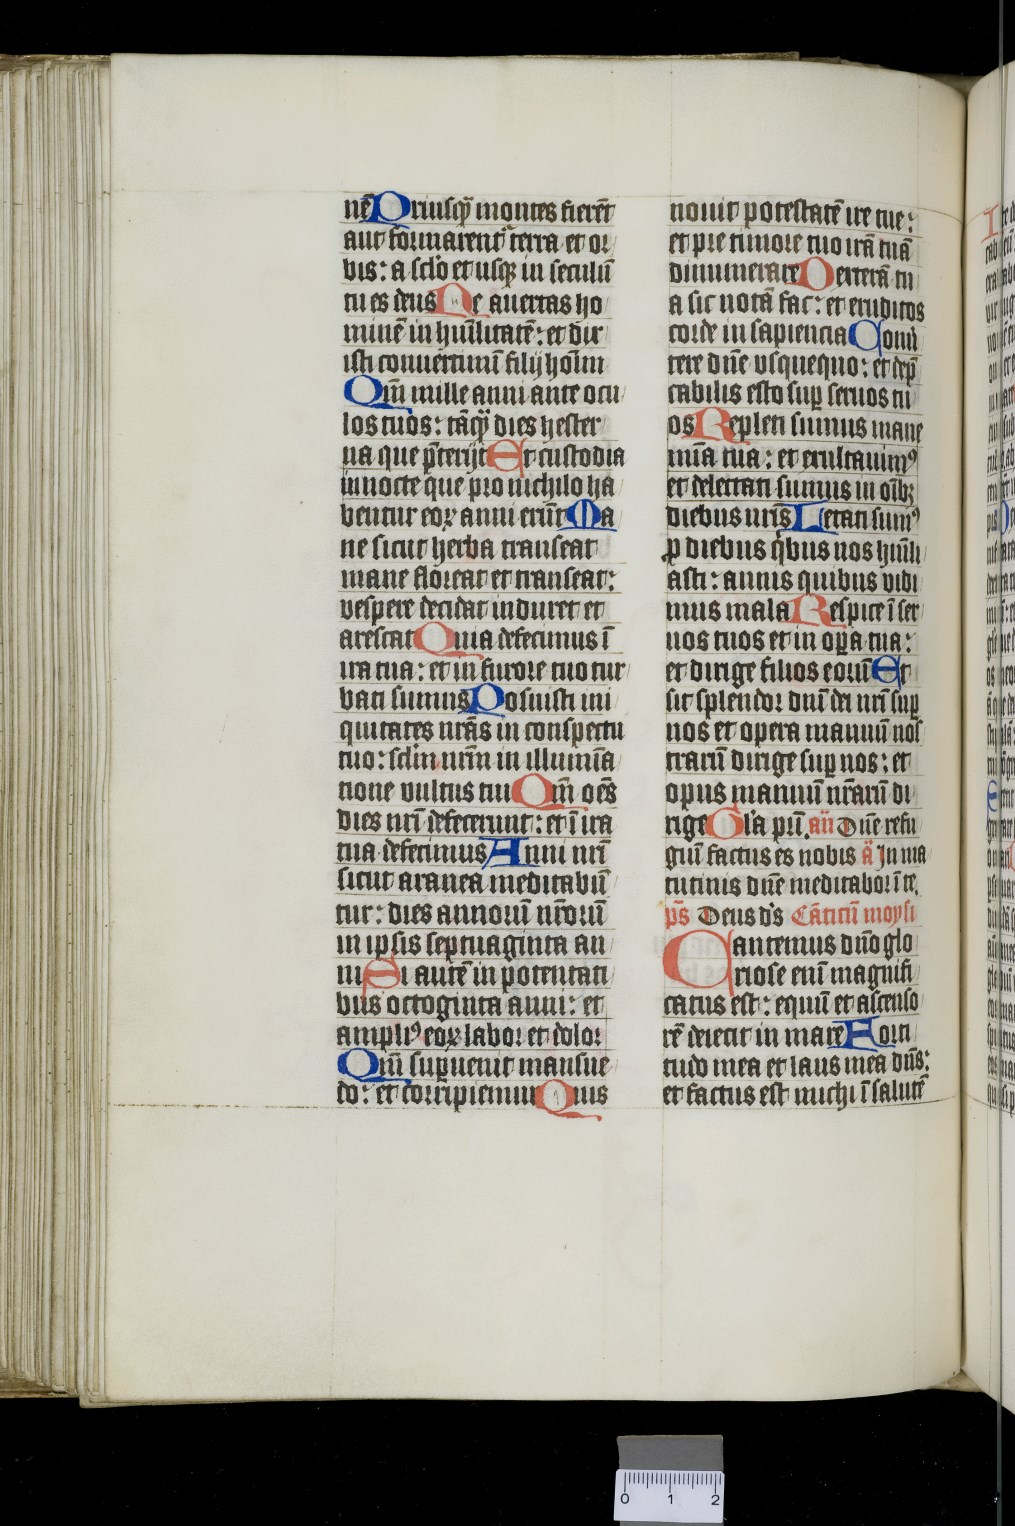 nē Priusq̄ montes fierēt
aut formarent᷑ terra et or
bis: a sclo et usq; in seculū
tu es deus Ne auertas ho
minē in humilitatē: et dix
isti conuertimī filij hoīm
Qm̄ mille anni ante ocu
los tuos: tāq̄ dies hester
na que p̄terijt Et custodia
in nocte que pro nichilo ha
bentur eoꝝ anni erūt Ma
ne sicut herba transeat
mane floreat et transeat:
vespere decidat induret et
arescat Quia defecimus ī
ira tua: et in furore tuo tur
bati sumus Posuisti ini
quitates nrās in conspectu
tuo: sclm nrm̄ in illumīa
tione vultus tui Qm̄ oēs
dies nrī defecerunt: et ī ira
tua defecimus Anni nrī
sicut aranea meditabū
tur: dies annorū nrōrū
in ipsis septuaginta an
ni Si autē in potentati
bus octoginta anni: et
ampliꝰ eoꝝ labor et dolor
Qm̄ supuenit mansue
do: et corripiemur Quis
nouit potestatē ire tue:
et pre timore tuo irā tuā
dinumerare Dexterā tu
a sic notā fac: et eruditos
corde in sapiencia Conū
tere dn̄e vsquequo: et dep̄
cabilis esto sup seruos tu
os Repleti sumus mane
mīa tua: et exultauimꝰ
et delectati sumus in oībꝫ
diebus nrīs Letati sumꝰ
ꝓ diebus qbus nos humili
asti: annis quibus vidi
mus mala Respice ī ser
uos tuos et in opa tua:
et dirige filios eorū Et
sit splendor dnī dei nrī sup
nos et opera manuū nos
trarū dirige sup nos: et
opus manuū nrārū di
rige Glā prī. an̄ Dn̄e refu
giū factus es nobis ā In ma
tutinis dn̄e meditabor ī te.
ps̄ Deus ds̄ Cāticū moysi
Cantemus dn̄o glo
riose enī magnifi
catus est: equū et ascenso
rē deiecit in mare Forti
tudo mea et laus mea dn̄s:
et factus est michi ī salutē